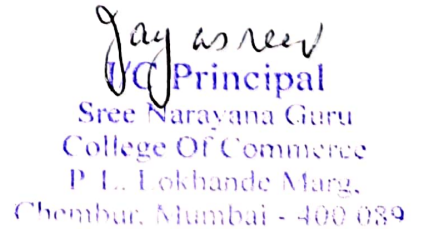 Jayasree
I/C Principal
Sree Narayana Guru
College Of Commerce
P. L. Lokhande Marg,
Chembur, Mumbai - 400 089